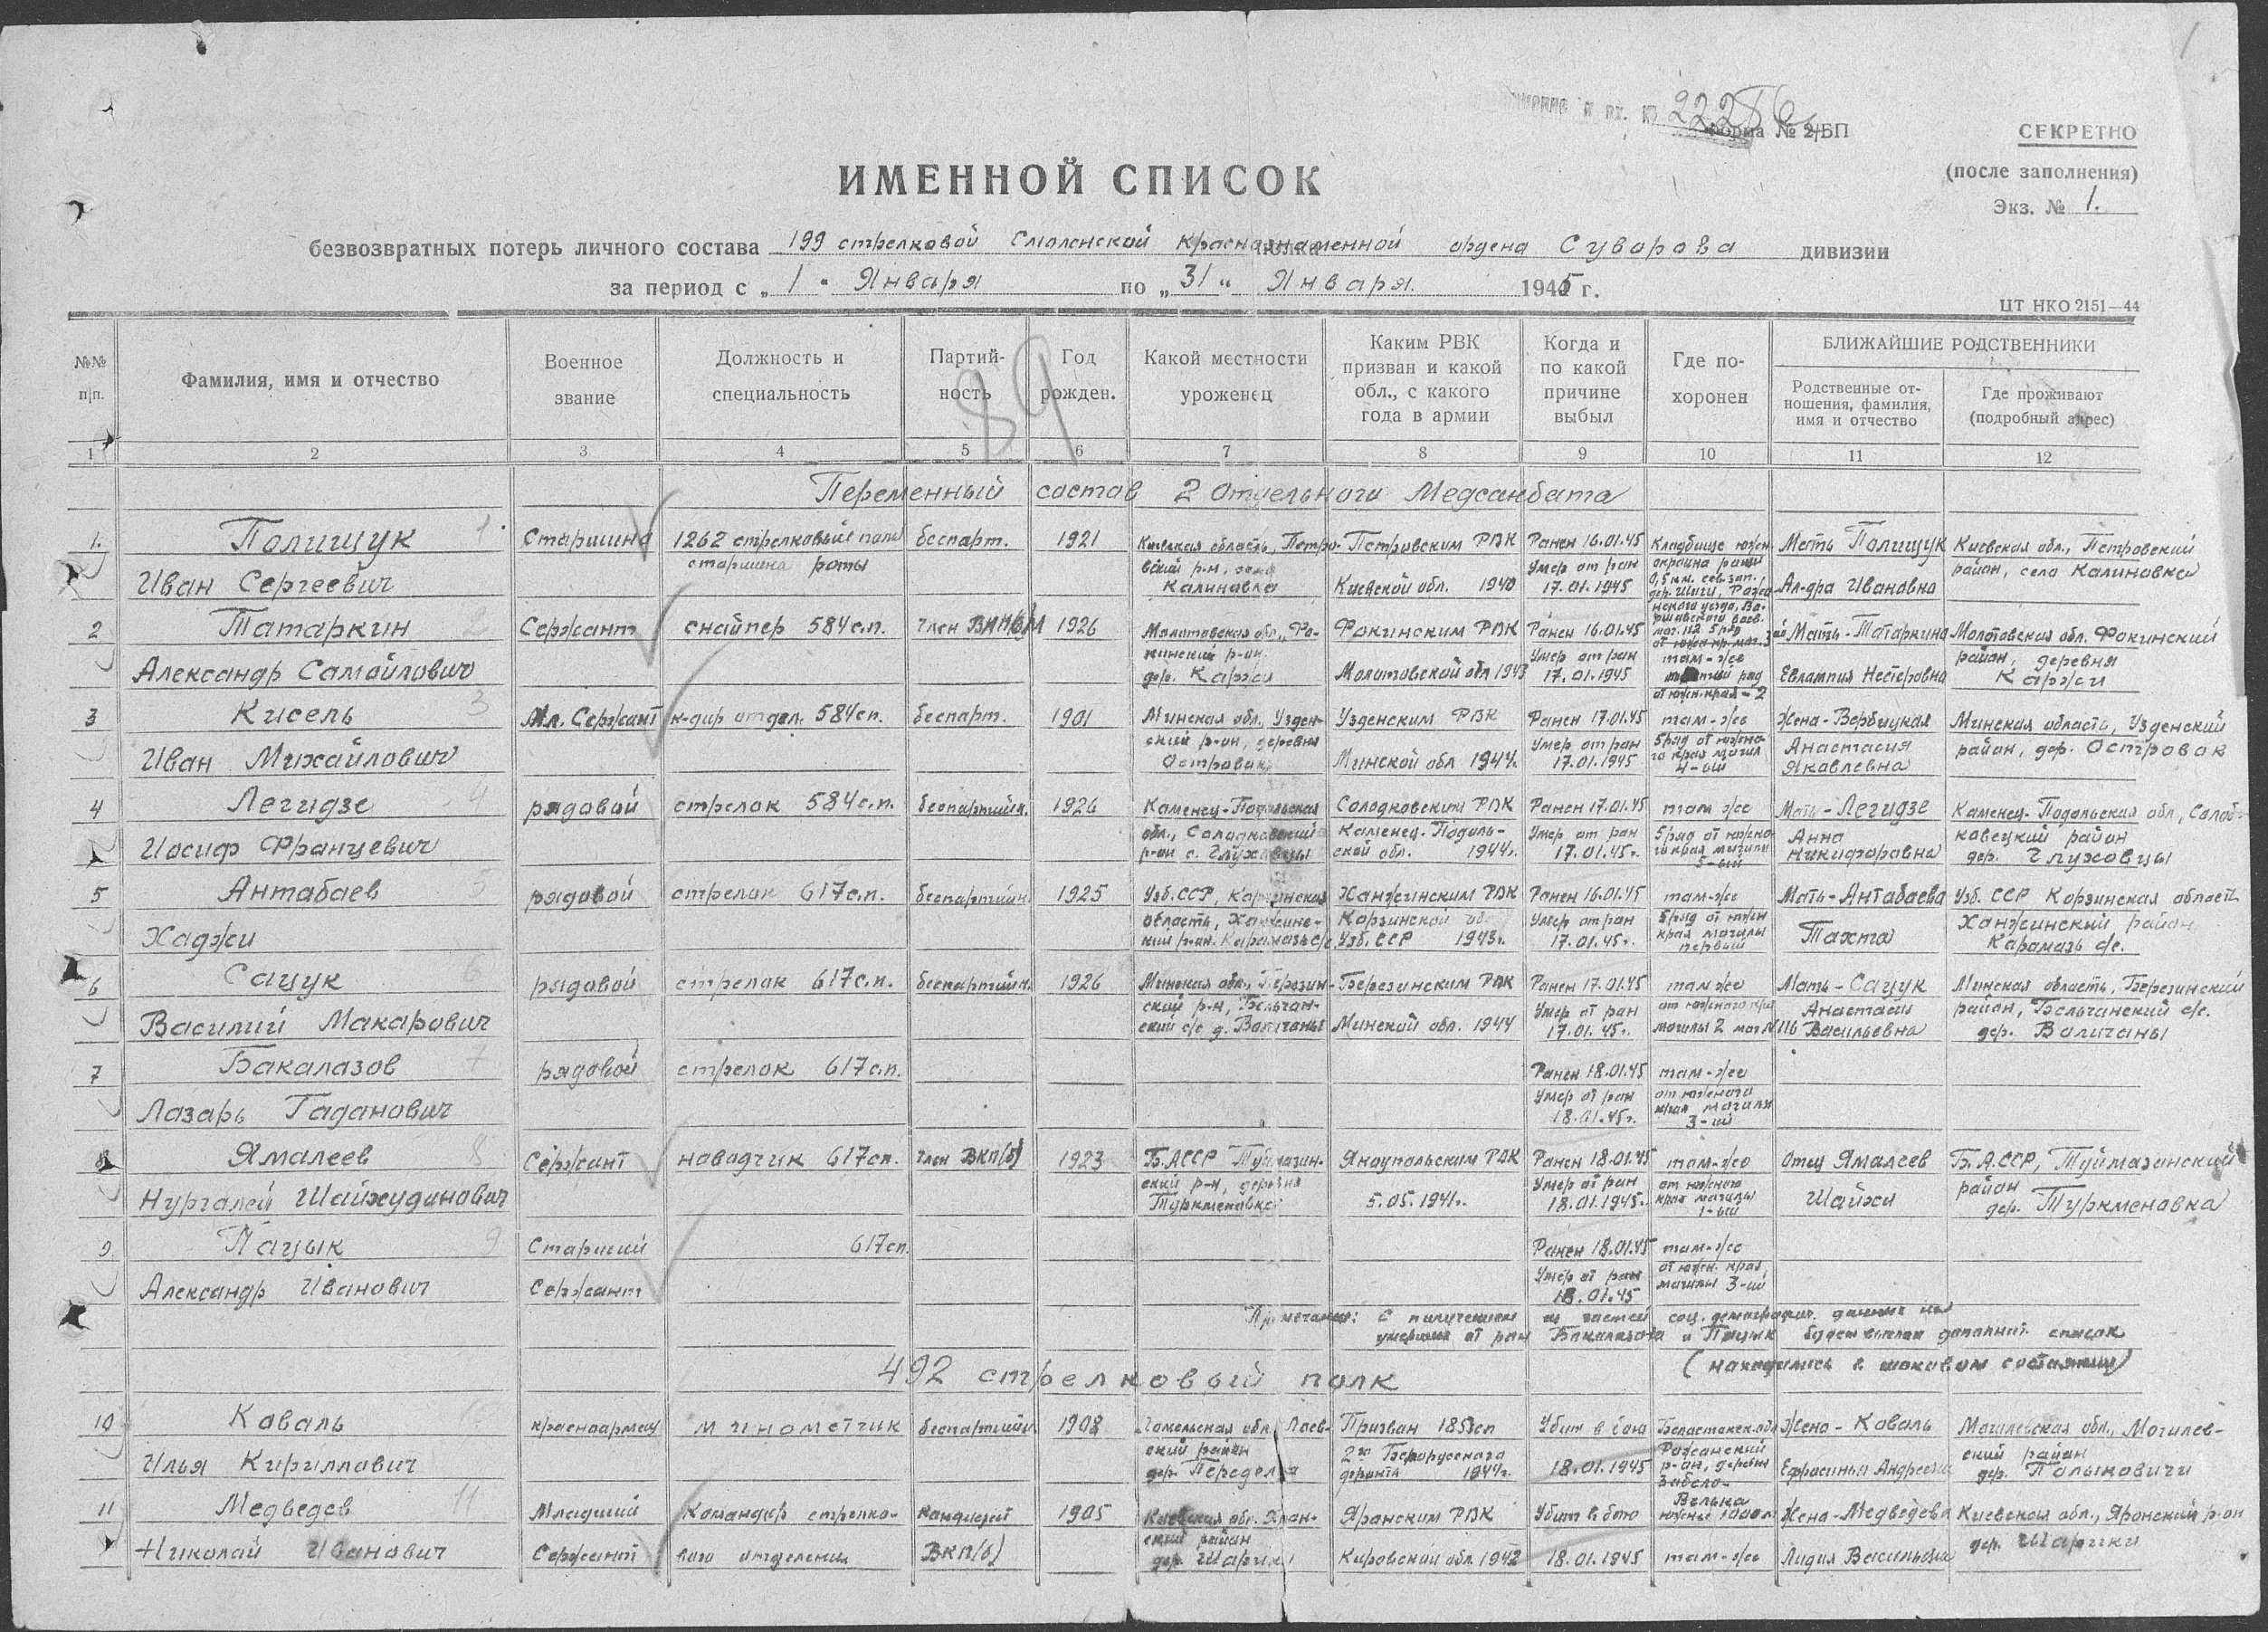 1
22286
Форма № 2/БП
СЕКРЕТНО
(после заполнения)
Экз. № 1.
ИМЕННОЙ СПИСОК
безвозвратных потерь личного состава 199 стрелковой Смоленской Краснознаменной ордена Суворова дивизии
за период с „ 1 " Января по „ 31 " Января 1945 г.
ЦТ НКО 2151—44
89
№№ п|п.
Фамилия, имя и отчество
Военное звание
Должность и специальность
Партий-ность
Год рожден.
Какой местности уроженец
Каким РВК призван и какой обл., с какого года в армии
Когда и по какой причине выбыл
Где по-хоронен
БЛИЖАЙШИЕ РОДСТВЕННИКИ
Родственные от-ношения, фамилия, имя и отчество
Где проживают (подробный адрес)
1 2 3 4 5 6 7 8 9 10 11 12
Переменный состав 2 Отдельного Медсанбата
1. Полищук 1. Старшина 1262 стрелковый полк беспарт. 1921 Киевская область, Петро- Петровским РВК Ранен 16.01.45 Кладбище южн. Мать Полищук Киевская обл., Петровский
Иван Сергеевич старшина роты вский р-н, село Калиновка Киевской обл. 1940 Умер от ран 17.01.1945 окраина рощи 0,5 км. сев. зап. Ал-дра Ивановна район, село Калиновка
2 Татаркин 2 Сержант снайпер 584 с.п. член ВЛКСМ 1926 Молотовская обл., Фо- Фокинским РВК Ранен 16.01.45 Мать-Татаркина Молотовская обл. Фокинский
Александр Самойлович кинский р-он. дер. Каржи Молотовской обл 1943 Умер от ран 17.01.1945 там-же ряд от южн. края - 2 Евлампия Нестеровна район, деревня Каржи
3 Кисель 3 Мл. Сержант к-дир отдел. 584 сп. беспарт. 1901 Минская обл., Узден- Узденским РВК Ранен 17.01.45 там-же Жена-Вербицкая Минская область, Узденский
Иван Михайлович ский р-он, деревня Островок Минской обл 1944г. Умер от ран 17.01.1945 5 ряд от южно-го края могил 4-ый Анастасия Яковлевна район, дер. Островок
4 Легидзе 4 рядовой стрелок 584 с.п. беспартийн. 1926 Каменец-Подольская Солодковским РВК Ранен 17.01.45 там же Мать-Легидзе Каменец-Подольская обл, Солоб-
Иосиф Францевич обл., р-он с. Глуховцы Каменец-Подоль-ской обл. 1944г. Умер от ран 17.01.45г. 5 ряд от южно-го края могилы 5-ый Анна Никифоровна ковецкий район дер. Глуховцы
5 Антабаев 5 рядовой стрелок 617 с.п. беспартийн. 1925 Узб. ССР, Ханжинским РВК Ранен 16.01.45 там-же Мать-Антабаева Узб. ССР Корзинская область
Хаджи область, Карамазь с/с Корзинской об. Узб. ССР 1943г. Умер от ран 17.01.45г. 5 ряд от южн края могилы первый Тахта Ханжинский район Карамазь с/с.
6 Сацук 6 рядовой стрелок 617 с.п. беспартийн. 1926 Минская обл., Березин- Березинским РВК Ранен 17.01.45 там же Мать-Сацук Минская область, Березинский
Василий Макарович ский р-н, ский с/с д. Минской обл. 1944 Умер от ран 17.01.45г. от южного кра могилы 2 мог. N116 Анастасия Васильевна район, с/с. дер. Валичаны
7 Бакалазов 7 рядовой стрелок 617 с.п. Ранен 18.01.45 там-же
Лазарь Гаданович Умер от ран 18.01.45г. от южного края могилы 3-ий
8 Ямалеев 8 Сержант наводчик 617 сп. член ВКП(б) 1923 Б.АССР Туймазин- Янаупольским РВК Ранен 18.01.45 там-же Отец Ямалеев Б.А.ССР, Туймазанский
Нургалей Шайхудинович ский р-н, деревня Туркменовка 5.05.1941г. Умер от ран 18.01.1945г. от южного края могилы 1-ый Шайхи район дер. Туркменовка
9. Пацык 9 Старший 617 сп. Ранен 18.01.45 там-же
Александр Иванович Сержант Умер от ран 18.01.45 от южн. края, могилы 3-ий
Примечание: С получением из частей соц. демографич. данных на
умерших от ран Бакалазова и Пацык будет выслан дополнит. список
(находились в шоковом состоянии)
492 стрелковый полк
10 Коваль красноармеец минометчик беспартийн 1908 Гомельская обл. Лоев- Призван 185 зсп Убит в бою Жена-Коваль Могилевская обл., Могилев-
Илья Кириллович ский район дер. Переделка 2го Белорусского фронта 1944г. 18.01.1945 Рожанский р-он, деревня Ефросинья Андреевна ский район дер. Полыковичи
11 Медведев 11 Младший Командир стрелко- Кандидат 1905 Яранским РВК Убит в бою Жена-Медведева Киевская обл., Яронский р-он
Николай Иванович Сержант вого отделения ВКП(б) ский район дер. Шарики Кировской обл. 1942 18.01.1945 там-же Лидия Васильевна дер. Шарики